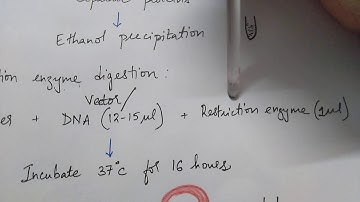 Ethanol precipitation
enzyme digestion :
Vector/
+ DNA (12-15 μl) + Restriction enzyme (1μl)
Incubate 37°C for 16 hours